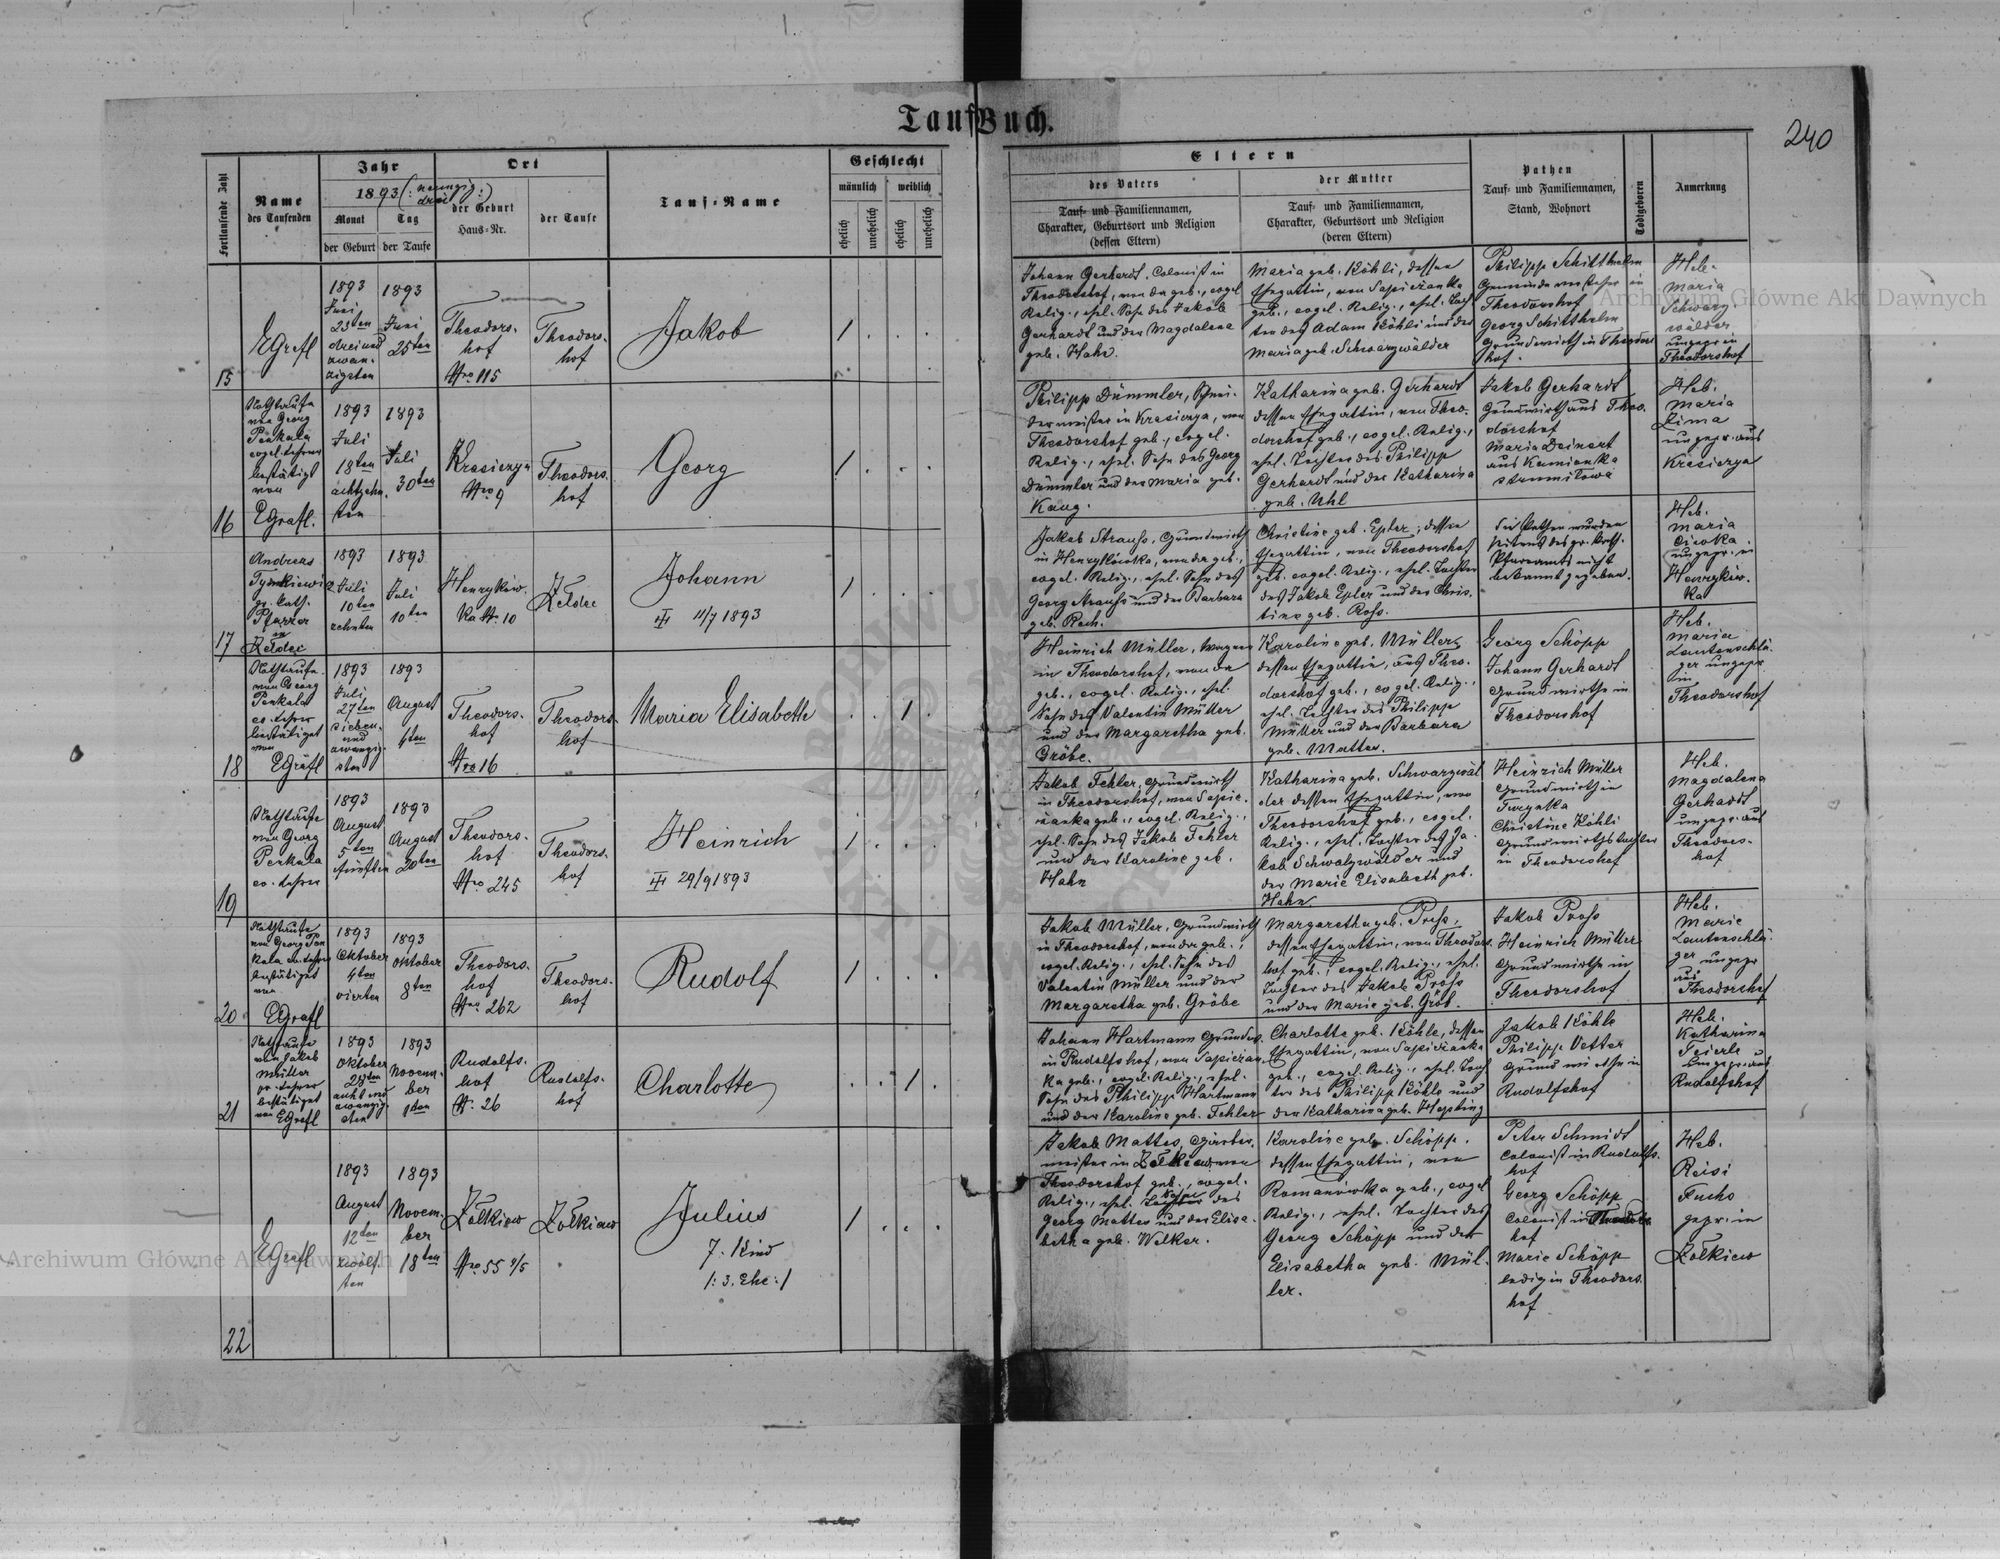 TaufBuch.
240
Fortlaufende Zahl
Name
des Taufenden
Jahr
1893 (: neunzig:)
drei
Monat
Tag
der Geburt
der Taufe
Ort
der Geburt
Haus-Nr.
der Taufe
Tauf-Name
Geschlecht
männlich
weiblich
ehelich
unehelich
ehelich
unehelich
Eltern
des Vaters
Tauf- und Familiennamen,
Charakter, Geburtsort und Religion
(dessen Eltern)
der Mutter
Tauf- und Familiennamen,
Charakter, Geburtsort und Religion
(deren Eltern)
Pathen
Tauf- und Familiennamen,
Stand, Wohnort
Todtgeboren
Anmerkung
15
EGrefl
1893
Juni
23ten
drei und
zwan-
zigsten
1893
Juni
25ten
Theodors-
hof
Nro 115
Theodors-
hof
Jakob
1
Johann Gerhardt, Colonist in
Theodorshof, von da geb., evgel.
Relig., ehel. Sohn des Jakob
Gerhardt und der Magdalena
geb. Hahn.
Maria geb. Köhli, dessen
Ehegattin, von Sapiezanka
geb., evgel. Relig., ehel. Toch-
ter des Adam Köhli und der
Maria geb. Schwarzwälder
Philipp Schitthelm
Gemeindevorsteher in
Theodorshof
Georg Schitthelm
Grundwirth in Theodors
hof.
Heb.
Maria
Schwarz-
wälder
ungepr. in
Theodorshof
16
Nothtaufe
von Georg
Penkala
evgel. Lehrer
bestätigt
von
EGrafl.
1893
Juli
18ten
achtzehn-
ten
1893
Juli
30ten
Kresiczyn
Nro 9
Theodors-
hof
Georg
1
Philipp Dümmler, Schnei-
dermeister in Kresiczya, von
Theodorshof geb., evgel.
Relig., ehel. Sohn des Georg
Dümmler und der Maria geb.
Kaug.
Katharina geb. Gerhardt
dessen Ehegattin, von Theo-
dorshof geb., evgel. Relig.,
ehel. Tochter des Philipp
Gerhardt und der Katharina
geb. Uhl
Jakob Gerhardt
Grundwirth aus Theo-
dorshof
Maria Deinert
aus Kamionka
strumiłowa
Heb.
Maria
Zima
ungepr. aus
Kresiczya
17
Andreas
gr. kath.
Pfarrer
in
Zeldec
1893
Juli
10ten
zehnten
1893
Juli
10ten
Henryków-
ka Nr. 10
Zeldec
Johann
11/7 1893
1
Jakob Strauss, Grundwirth
in Henrykówka, von da geb.,
evgel. Relig., ehel. Sohn des
Georg Strauss und der Barbara
geb. Rech.
Christine geb. Epler, dessen
Ehegattin, von Theodorshof
geb. evgel. Relig., ehel. Tochter
des Jakob Epler und der Chris-
tine geb. Ross.
Die Pathen wurden
seitens des gr. kath.
Pfarramts nicht
bekannt gegeben.
Heb.
Maria
ungepr. in
Henryków-
ka
18
Nothtaufe
von Georg
Penkala
ev. Lehrer
bestätiget
von
EGrafl
1893
Juli
27ten
sieben-
und
zwanzig-
sten
1893
August
4ten
Theodors-
hof
Nro 16
Theodors-
hof
Maria Elisabeth
1
Heinrich Müller, Wagner
in Theodorshof, von da
geb., evgel. Relig., ehel.
Sohn des Valentin Müller
und der Margaretha geb.
Gröbe.
Karoline geb. Müller,
dessen Ehegattin, aus Theo-
dorshof geb., evgel. Relig.,
ehel. Tochter des Philipp
Müller und der Barbara
geb. Matter.
Georg Schöpp
Johann Gerhardt
Grundwirthe in
Theodorshof
Heb.
Maria
Lautenschlä-
ger ungepr.
in
Theodorshof
19
Nothtaufe
von Georg
Penkala
ev. Lehrer
1893
August
5ten
fünften
1893
August
20ten
Theodors-
hof
Nro 245
Theodors-
hof
Heinrich
29/9 1893
1
Jakob Fehler, Grundwirth
in Theodorshof, von Sapie-
zanka geb., evgel. Relig.,
ehel. Sohn des Jakob Fehler
und der Karoline geb.
Hahn
Katharina geb. Schwarzwäl-
der dessen Ehegattin, von
Theodorshof geb., evgel.
Relig., ehel. Tochter des Ja-
kob Schwalzwälder und
der Marie Elisabeth geb.
Hahn
Heinrich Müller
Grundwirth in
Turynka
Christine Köhli
Grundwirthstochter
in Theodorshof
Heb.
Magdalena
Gerhardt
ungepr. aus
Theodors-
hof
20
Nothtaufe
von Georg Pen
kala ev. Lehrer
bestätiget
von
EGrafl
1893
Oktober
4ten
vierten
1893
Oktober
8ten
Theodors-
hof
Nro 262
Theodors-
hof
Rudolf
1
Jakob Müller, Grundwirth
in Theodorshof, von da geb.,
evgel. Relig., ehel. Sohn des
Valentin Müller und der
Margaretha geb. Gröbe
Margaretha geb. Pross,
dessen Ehegattin, von Theodors-
hof geb., evgel. Relig., ehel.
Tochter des Jakob Pross
und der Marie geb. Gröb.
Jakob Pross
Heinrich Müller
Grundwirthe in
Theodorshof
Heb.
Marie
Lautenschlä-
ger ungepr
aus
Theodorshof
21
Nothtaufe
von Jakob
Müller
ev. Lehrer
bestätiget
von EGrefl
1893
Oktober
28ten
acht und
zwanzig-
sten
1893
Novem-
ber
1ten
Rudolfs-
hof
Nr. 26
Rudolfs-
hof
Charlotte
1
Johann Hartmann Grundw.
in Rudolfshof, von Sapiezan-
ka geb., evgel. Relig., ehel.
Sohn des Philipp Hartmann
und der Karoline geb. Fehler
Charlotte geb. Köhle, dessen
Ehegattin, von Sapiezanka
geb., evgel. Relig., ehel. Toch
ter des Philipp Köhle und
der Katharina geb. Hepting
Jakob Köhle
Philipp Vetter
Grundwirthe in
Rudolfshof
Heb.
Katharina
Feierle
ungepr. aus
Rudolfshof
22
EGrefl
1893
August
12ten
zwölf-
ten
1893
Novem-
ber
18ten
Zolkiew
Nro 55 9/5
Zolkiew
Julius
7. Kind
/: 3. Ehe :/
1
Jakob Mattes, Gärber-
meister in Zolkiew, von
Theodorshof geb., evgel.
Relig., ehel. Sohn des
Georg Mattes und der Elisa-
betha geb. Welker.
Karoline geb. Schöpp.
dessen Ehegattin, von
Romanówka geb., evgel
Relig., ehel. Tochter des
Georg Schöpp und der
Elisabetha geb. Mül-
ler.
Peter Schmidt
Colonist in Rudolfs-
hof
Georg Schöpp
Colonist in Theodors-
hof
Marie Schöpp
ledig in Theodors-
hof
Heb.
Reisi
Fuchs
gepr. in
Zolkiew
Archiwum Główne Akt Dawnych
Archiwum Główne Akt Dawnych